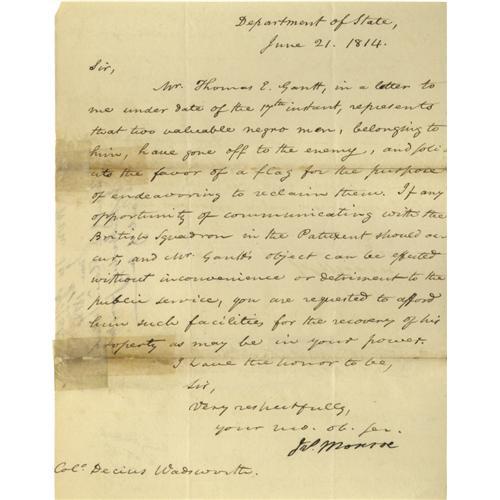 Department of State,
June 21. 1814.
Sir,
Mr. Thomas E. Gantt, in a letter to
me under date of the 17th instant, represents
that two valuable negro men, belonging to
him, have gone off to the enemy, and soli-
cits the favor of a flag for the purpose
of endeavoring to reclaim them. If any
opportunity of communicating with the
British Squadron in the Patuxent should oc-
cur, and Mr. Gantt's object can be effected
without inconvenience or detriment to the
public service, you are requested to afford
him such facilities for the recovery of his
property as may be in your power.
I have the honor to be,
Sir,
Very respectfully,
your mo. ob. ser.
Jas. Monroe
Colo. Decius Wadsworth.